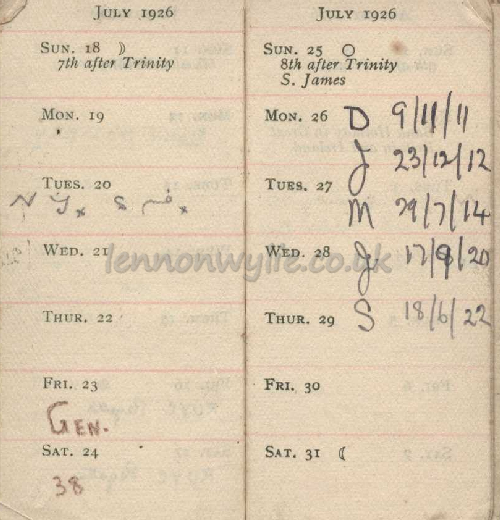 JULY 1926
SUN. 18
7th after Trinity
MON. 19
TUES. 20
WED. 21
THUR. 22
FRI. 23
GEN.
SAT. 24
38
JULY 1926
SUN. 25
8th after Trinity
S. James
MON. 26 D 9/11/11
J 23/12/12
TUES. 27
M 29/7/14
WED. 28 J 17/9/20
THUR. 29 S 18/6/22
FRI. 30
SAT. 31
lennonwylie.co.uk